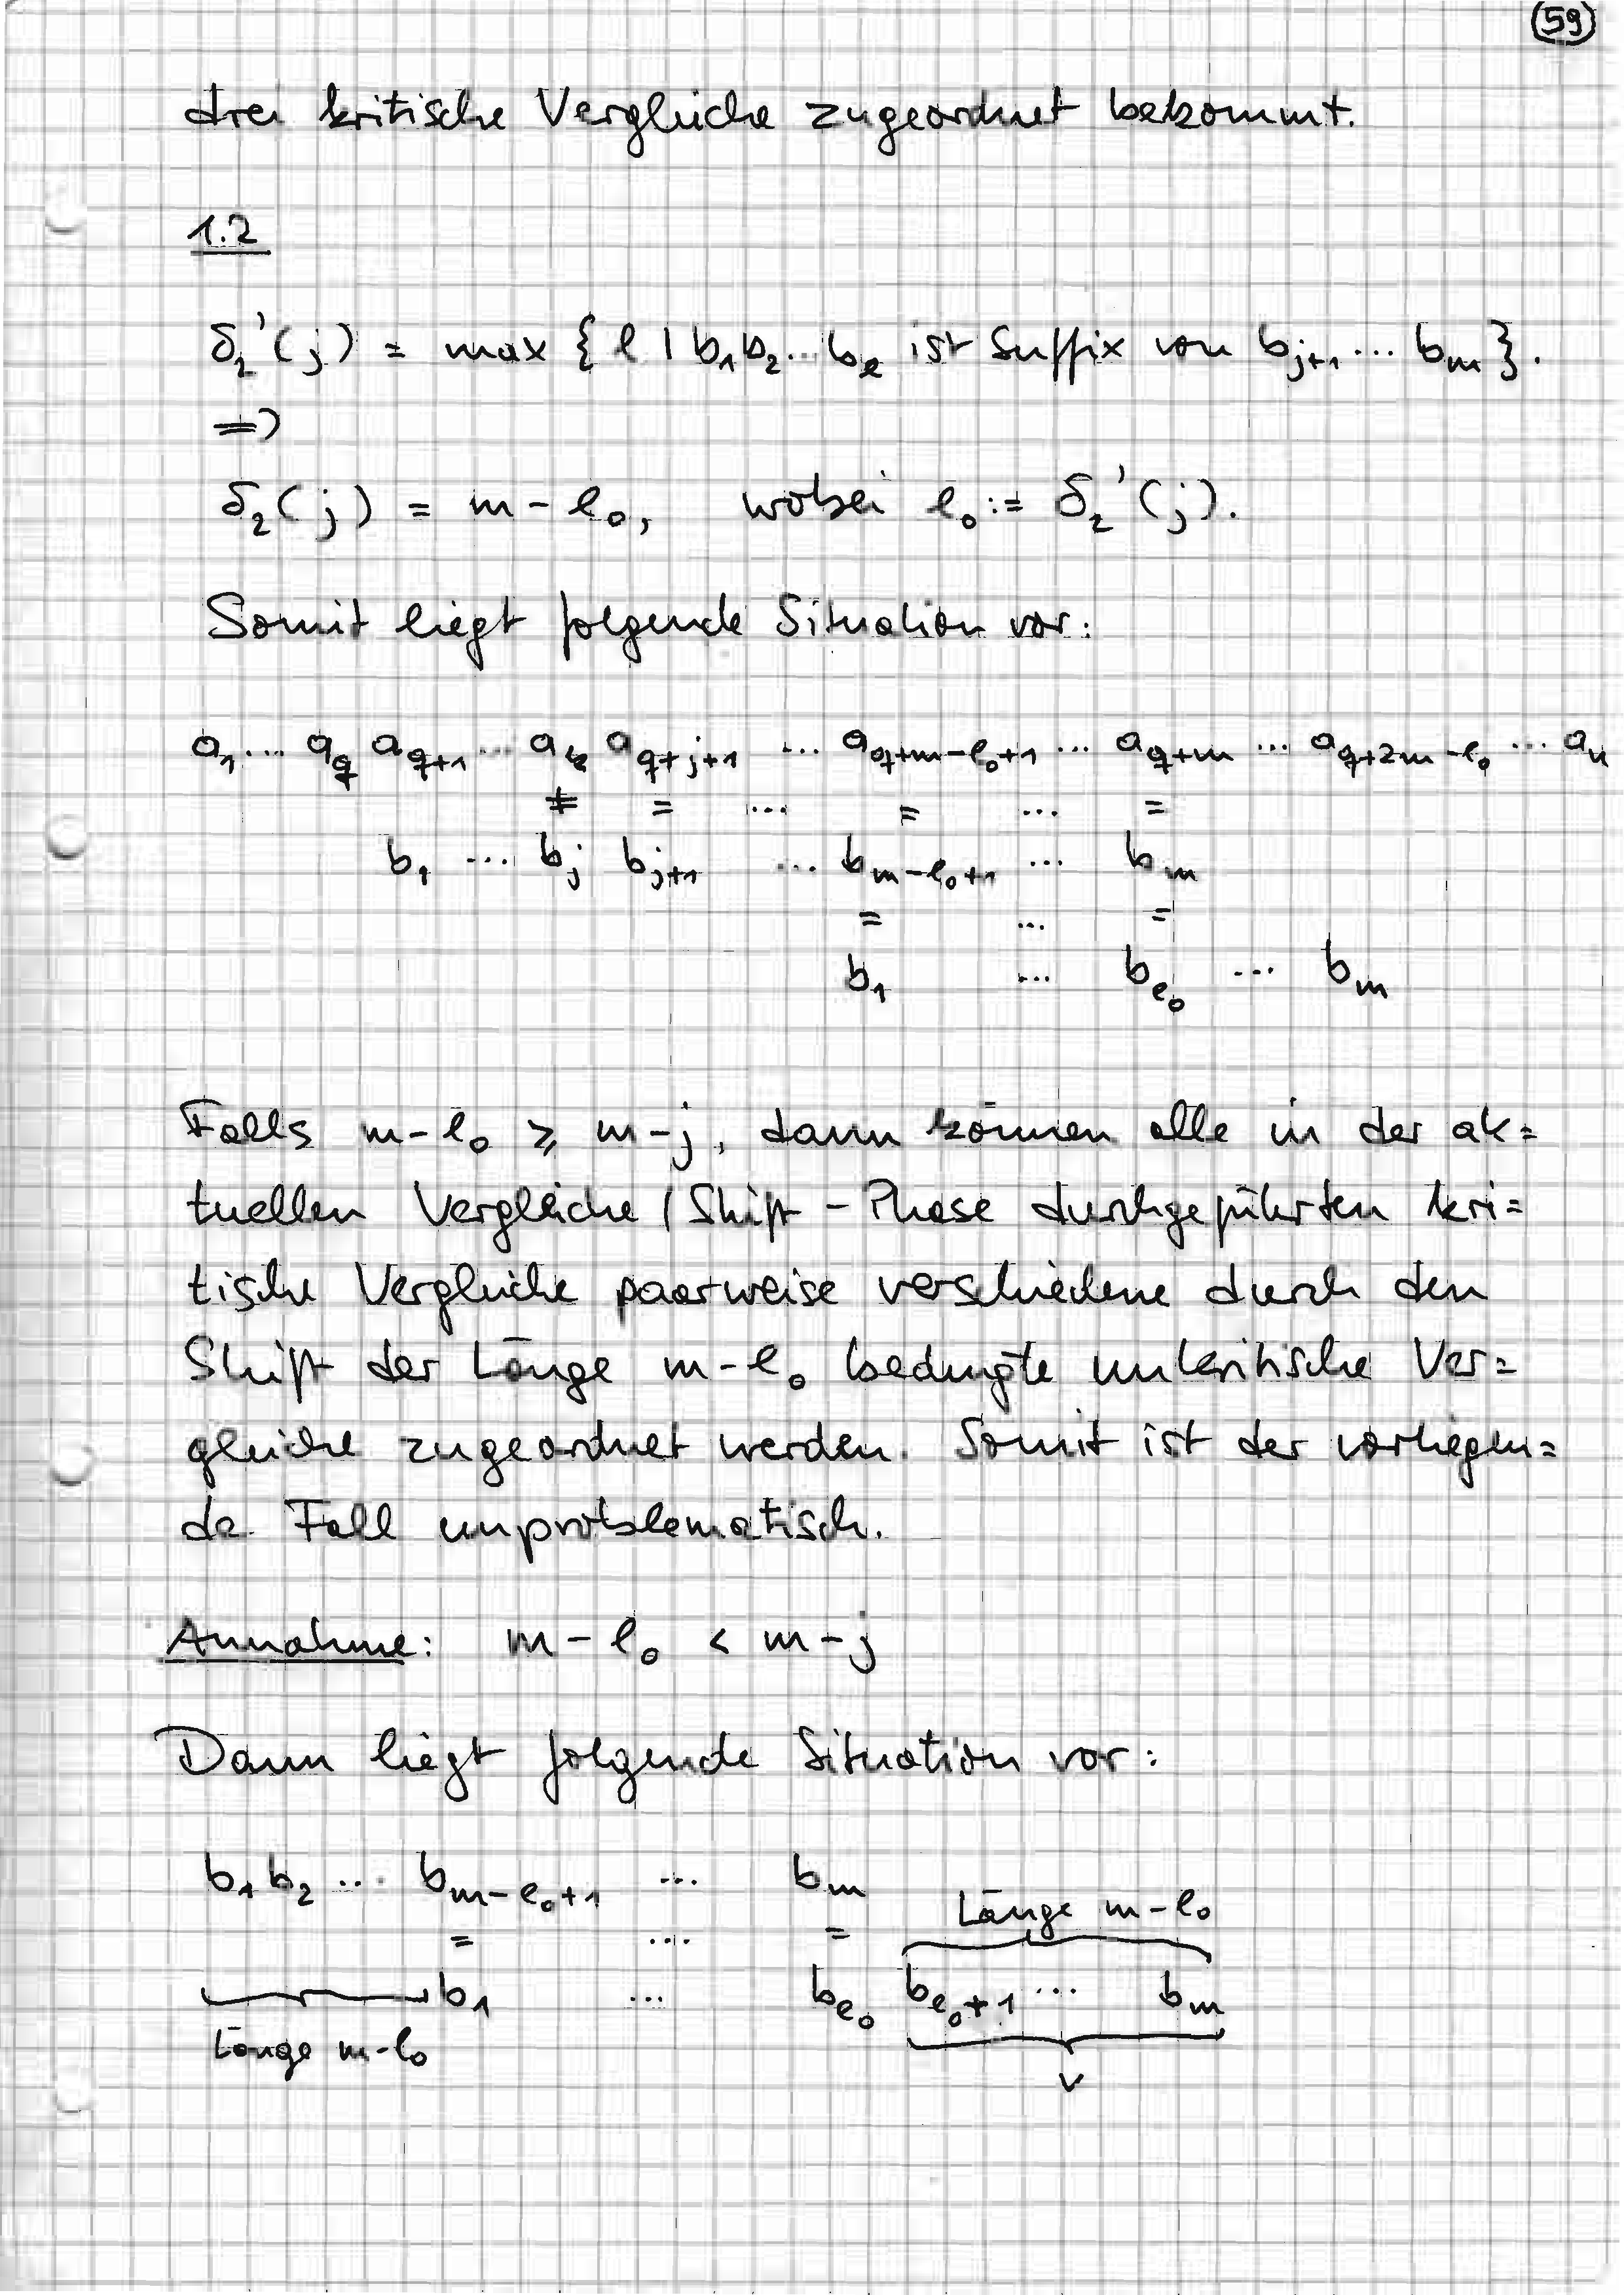 59
drei kritische Vergleiche zugeordnet bekommt.
1.2
δ₂'(j) = max {ℓ | b₁b₂...b_ℓ ist Suffix von b_{j+1} ... b_m}.
⇒
δ₂(j) = m - ℓ₀, wobei ℓ₀ := δ₂'(j).
Somit liegt folgende Situation vor:
a₁ ... a_q a_{q+1} ... a_k a_{q+j+1} ... a_{q+m-ℓ₀+1} ... a_{q+m} ... a_{q+2m-ℓ₀} ... a_n
≠ = ... = ... =
b₁ ... b_j b_{j+1} ... b_{m-ℓ₀+1} ... b_m
= ... =
b₁ ... b_{ℓ₀} ... b_m
Falls m-ℓ₀ ≥ m-j, dann können alle in der ak=
tuellen Vergleiche/Shift-Phase durchgeführten kri=
tische Vergleiche paarweise verschiedene durch den
Shift der Länge m-ℓ₀ bedingte unkritische Ver=
gleiche zugeordnet werden. Somit ist der vorliegen=
de Fall unproblematisch.
Annahme: m-ℓ₀ < m-j
Dann liegt folgende Situation vor:
b₁b₂ ... b_{m-ℓ₀+1} ... b_m
Länge m-ℓ₀
= ... =
b₁ ... b_{ℓ₀} b_{ℓ₀+1} ... b_m
Länge m-ℓ₀
v